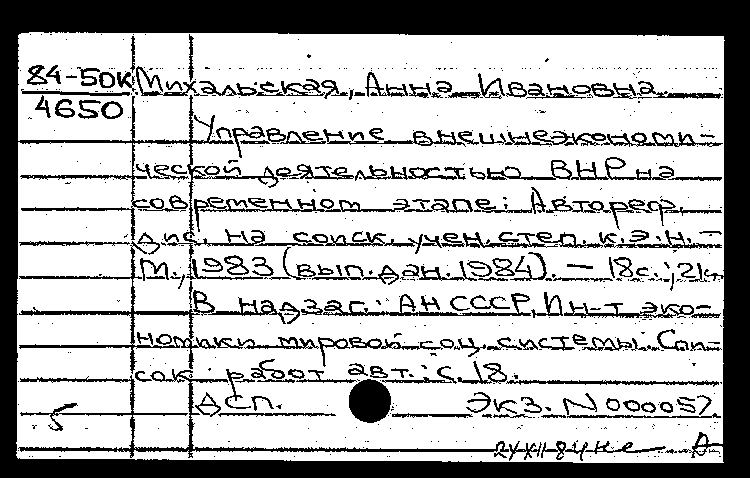 84-50К Михальская, Анна Ивановна.
4650
Управление внешнеэкономи-
ческой деятельностью ВНР на
современном этапе: Автореф.
дис. на соиск. учен. степ. к.э.н. –
М., 1983 (вып. дан. 1984). – 18с.; 21см
В надзаг.: АН СССР, Ин-т эко-
номики мировой соц. системы. Спи-
сок работ авт.: с. 18.
ДСП. Экз. N 000057.
5